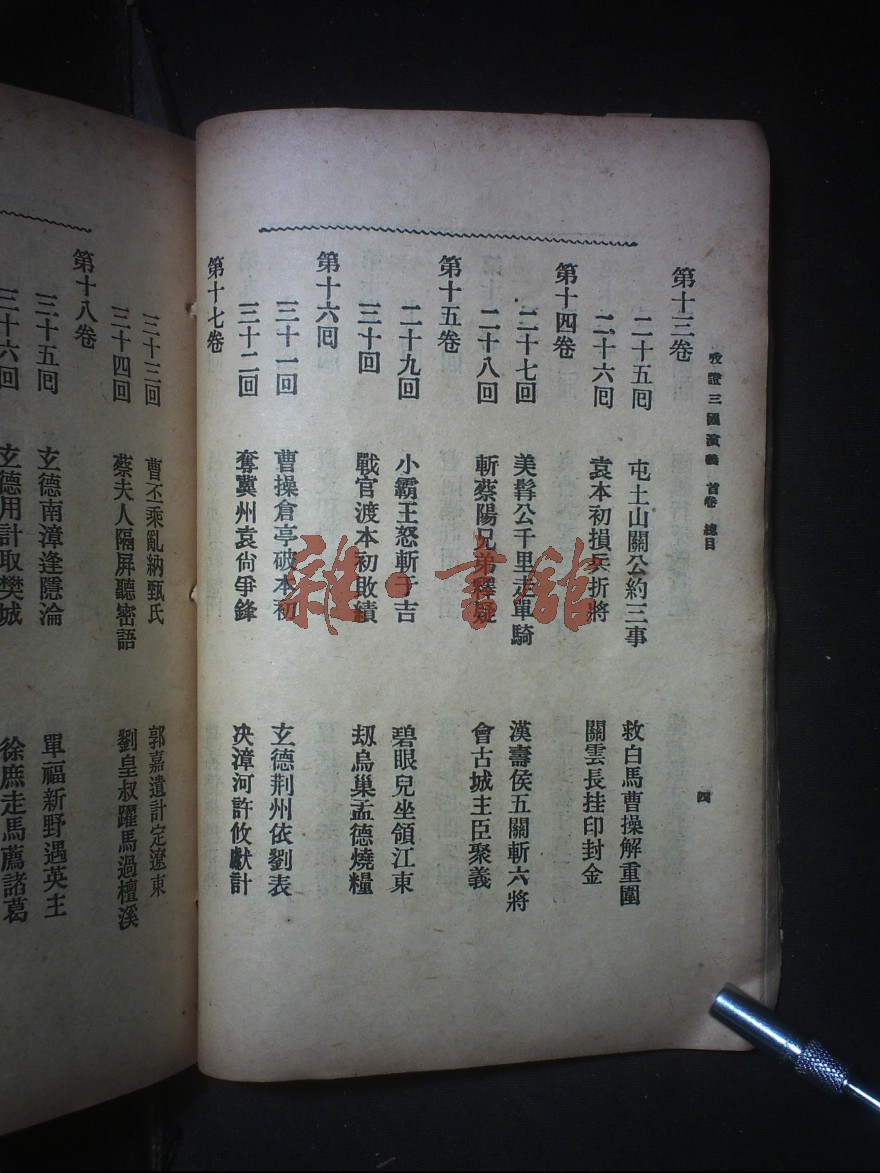 攷證三國演義 首卷 總目
四
第十三卷
二十五囘 屯土山關公約三事 救白馬曹操解重圍
二十六囘 袁本初損兵折將 關雲長挂印封金
第十四卷
二十七回 美髯公千里走單騎 漢壽侯五關斬六將
二十八回 斬蔡陽兄弟釋疑 會古城主臣聚義
第十五卷
二十九回 小霸王怒斬于吉 碧眼兒坐領江東
三十回 戰官渡本初敗績 刼烏巢孟德燒糧
第十六囘
三十一回 曹操倉亭破本初 玄德荆州依劉表
三十二回 奪冀州袁尙爭鋒 决漳河許攸獻計
第十七卷
三十三回 曹丕乘亂納甄氏 郭嘉遺計定遼東
三十四回 蔡夫人隔屏聽密語 劉皇叔躍馬過檀溪
第十八卷
三十五囘 玄德南漳逢隱淪 單福新野遇英主
三十六回 玄德用計取樊城 徐庶走馬薦諸葛
雜·書館